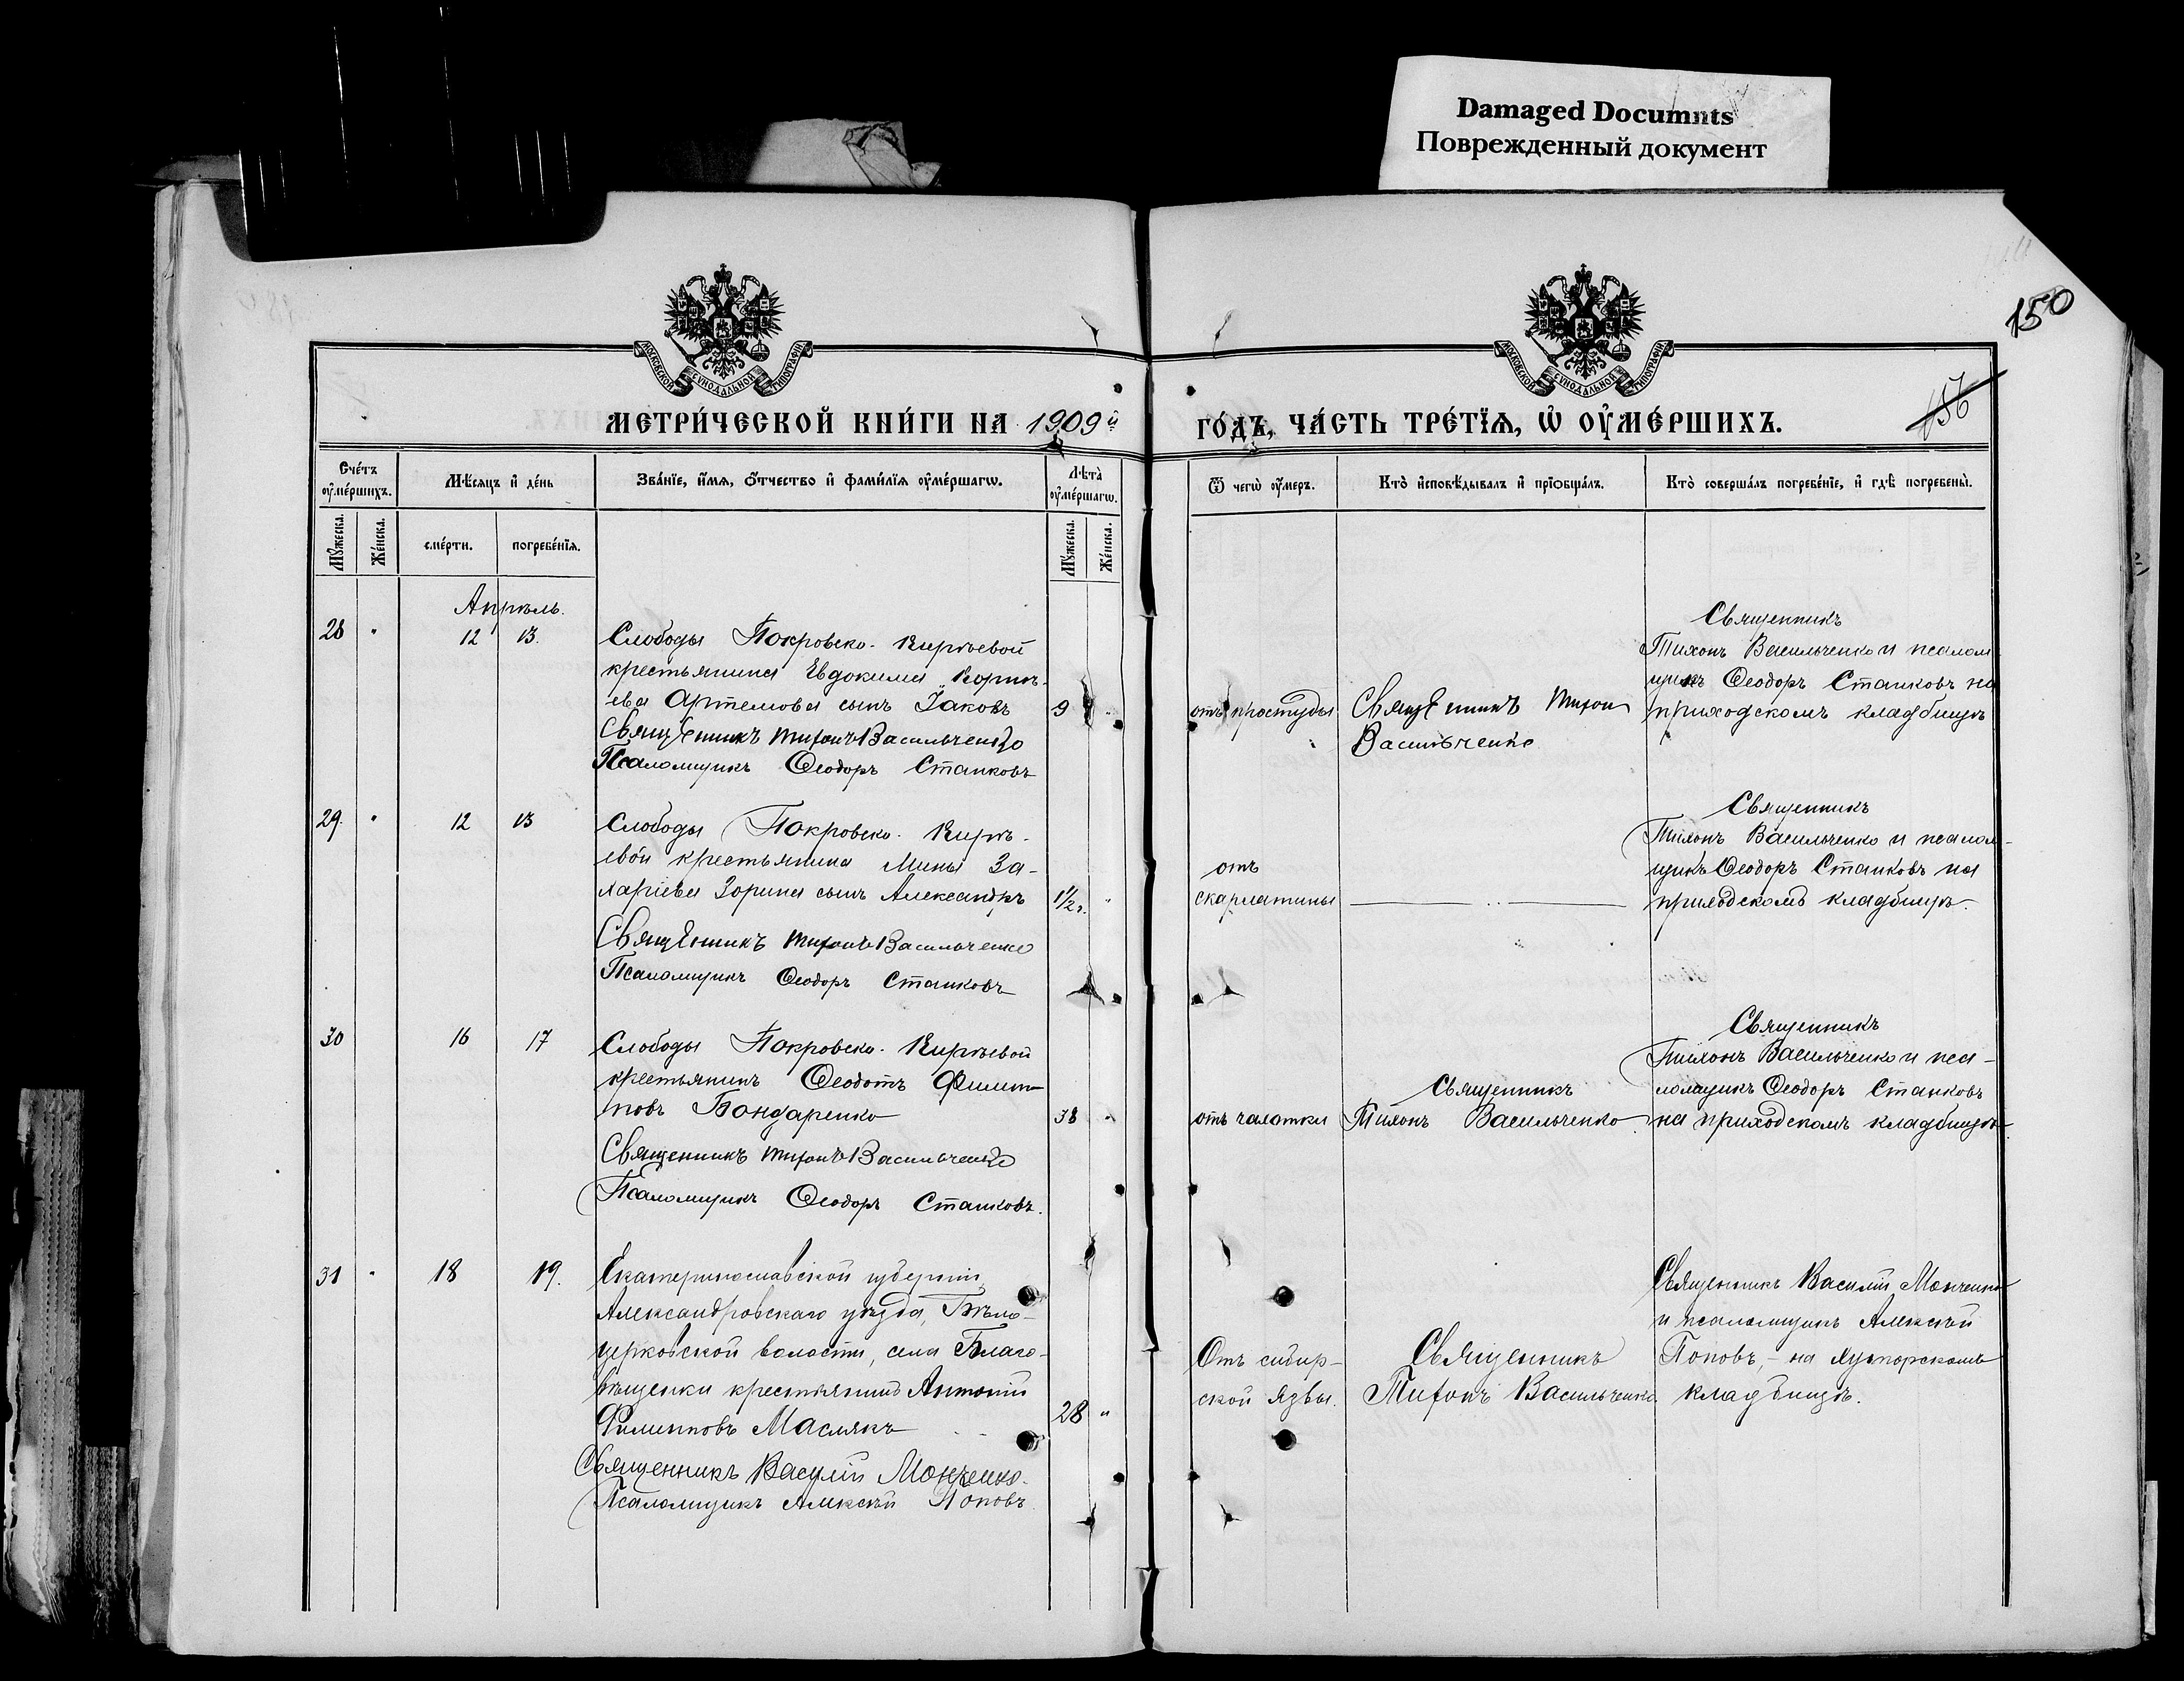 Damaged Documnts
Поврежденный документ
150
156
МОСКОВСКОЙ СѴНОДАЛЬНОЙ ТИПОГРАФІИ
МОСКОВСКОЙ СѴНОДАЛЬНОЙ ТИПОГРАФІИ
МЕТРИ́ЧЕСКОЙ КНИ́ГИ НА 1909й ГО́ДЪ, ЧА́СТЬ ТРЕ́ТЇѦ, Ѡ҆ ОУ҆МЕ́РШИХЪ.
Сче́тъ оу҆ме́ршихъ.
Мѣ́сяцъ и҆ де́нь
Зва́нїе, и҆́мя, ѻ҆́тчество и҆ фами́лїя оу҆ме́ршагѡ.
Лѣ́та оу҆ме́ршагѡ.
Ѿ чегѡ̀ оу҆́меръ.
Кто̀ и҆сповѣ́дывалъ и҆ прїѡбща́лъ.
Кто̀ соверша́лъ погребе́нїе, и҆ гдѣ̀ погребены̀.
Мꙋ́жеска.
Же́нска.
сме́рти.
погребе́нїя.
Мꙋ́жеска.
Же́нска.
Апрѣль.
28 " 12 13.
Слободы Покровско-Кирѣевой
крестьянина Евдокима Корнѣ-
ева Артемова сынъ Іаковъ
9 "
Священникъ Тихонъ Васильченко
Псаломщикъ Ѳеодоръ Станковъ
отъ простуды
Священникъ Тихон
Васильченко
Священникъ
Тихонъ Васильченко и псалом
щикъ Ѳеодоръ Станковъ на
приходскомъ кладбищѣ
29. " 12 13
Слободы Покровско-Кирѣ-
евой крестьянина Мины За-
харіева Зорина сынъ Александръ
1 1/2 г. "
Священникъ Тихонъ Васильченко
Псаломщикъ Ѳеодоръ Станковъ
отъ
скарлатины
Священникъ
Тихонъ Васильченко и псалом-
щикъ Ѳеодоръ Станковъ на
приходскомъ кладбищѣ.
30 16 17
Слободы Покровско-Кирѣевой
крестьянинъ Ѳеодотъ Филип-
повъ Бондаренко
38 "
Священникъ Тихонъ Васильченко
Псаломщикъ Ѳеодоръ Станковъ.
отъ чахотки
Священникъ
Тихонъ Васильченко.
Священникъ
Тихонъ Васильченко и пса-
ломщикъ Ѳеодоръ Станковъ
на приходскомъ кладбищѣ.
31 " 18 19.
Екатеринославской губерніи,
Александровскаго уѣзда, Бѣло-
церковской волости, села Благо-
вѣщенки крестьянинъ Антоній
Филипповъ Маслякъ
28 "
Священникъ Василій Монченко.
Псаломщикъ Алексѣй Поповъ.
Отъ сибир-
ской язвы.
Священникъ
Тихонъ Васильченко.
Священникъ Василій Монченко
и псаломщикъ Алексѣй
Поповъ, - на хуторскомъ
кладбищѣ.